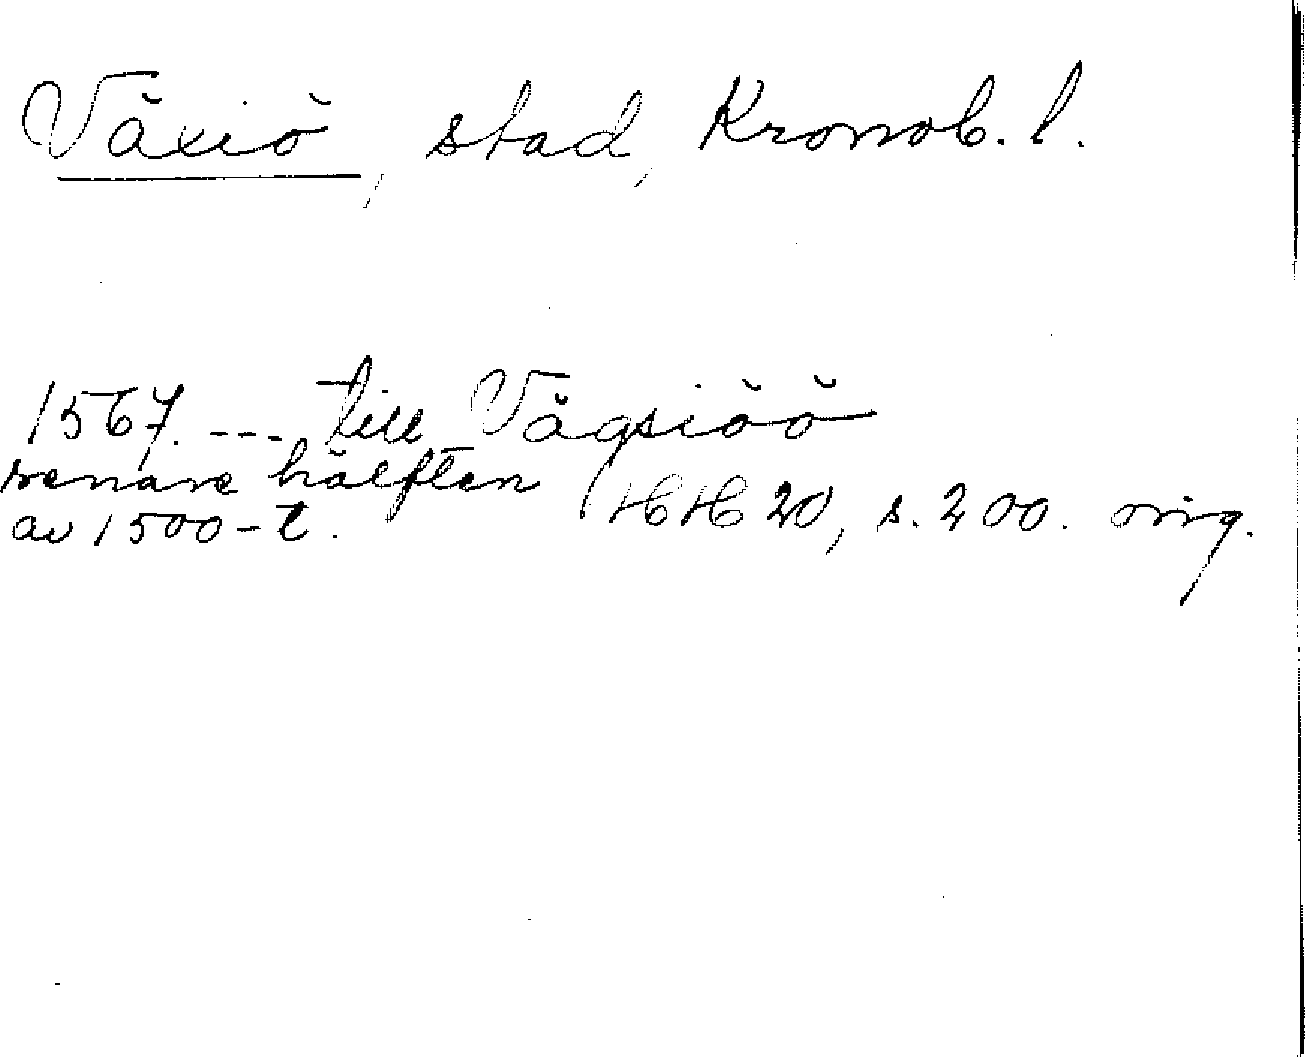 Växiö, stad, Kronob. l.
1567. --- till Vägsiöö
senare hälften
av 1500-t. HH 20, s. 200. orig.